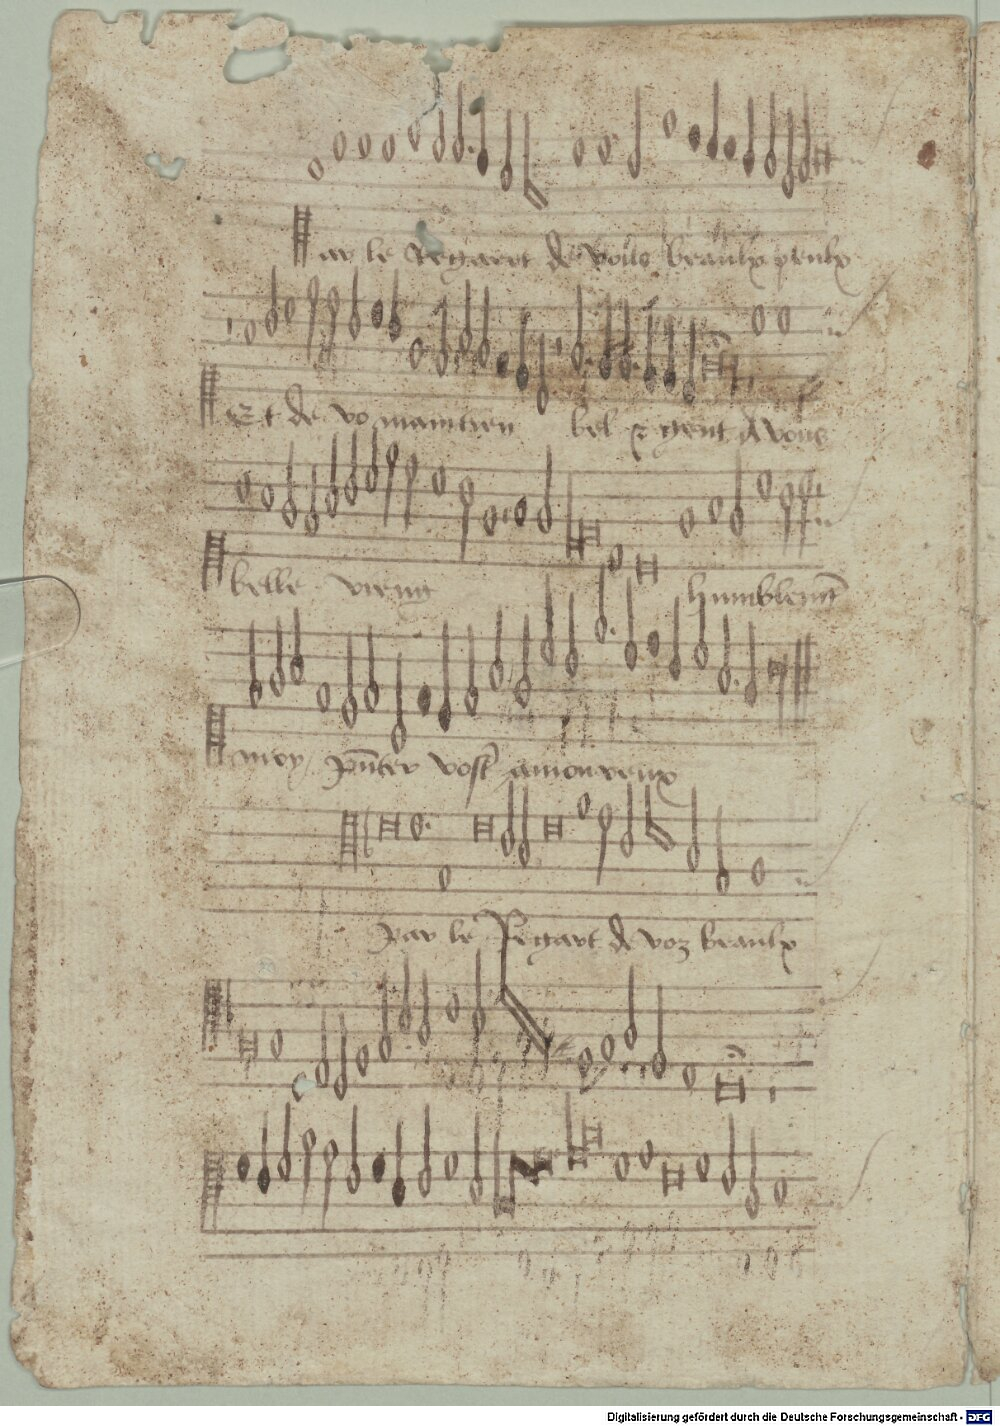 Par le Regart de vous beaulx yeulx
Et de vo maintien bel & gent A vous
belle vieng humblemt
moy pnter vost amoureux
Par le Regart de voz beaulx
Digitalisierung gefördert durch die Deutsche Forschungsgemeinschaft - DFG